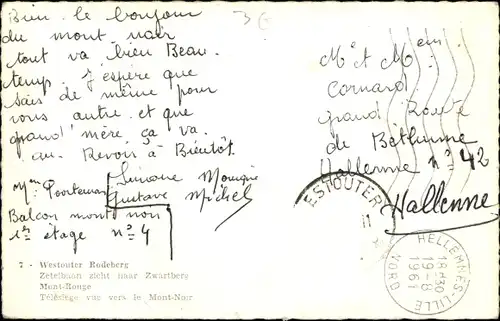 Bien le bonjour
du mont nair
tout va bien Beau
temp. J'espère que
sais de même pour
vous autre et que
grand' mère ça va.
au Revoir à Bientôt.
Simone Monique
Gustave Michel
Mme
Balcon mont noir
1er étage n° 4
7 - Westouter Rodeberg
Zetelbaan zicht naar Zwartberg
Mont-Rouge
Télésiège vue vers le Mont-Noir
Mr et Mme
Cornard
grand Route
de Béthune
Hallenne n° 42
Hallenne
ESTOUTER
HELLEMMES-LILLE
18H30
19-8
1961
NORD